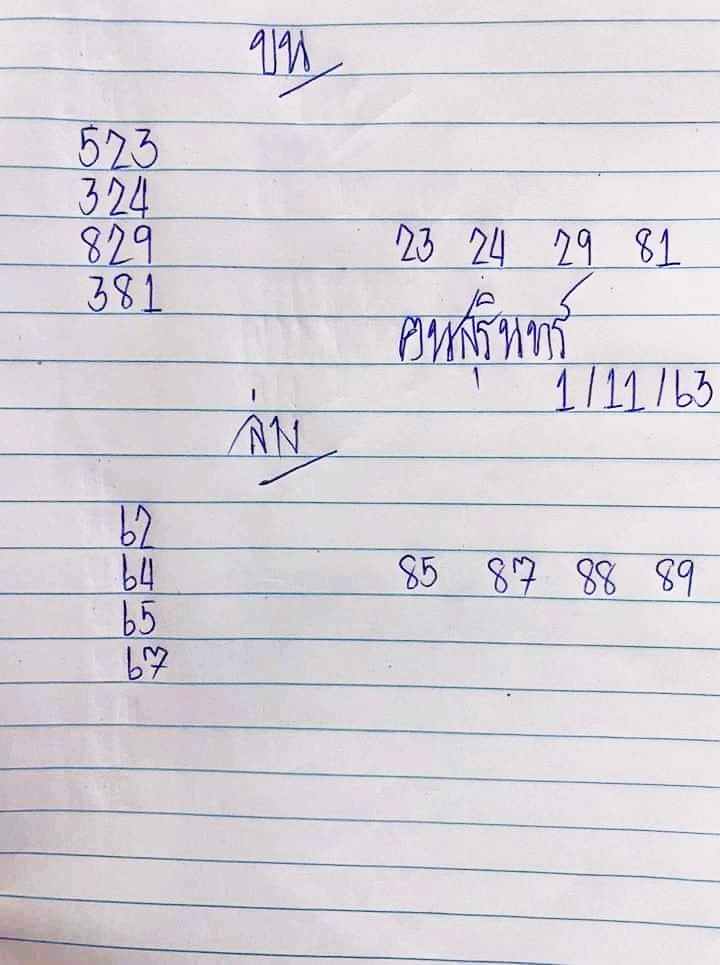 บน
523
324
829 23 24 29 81
381
คนสุรินทร์
1/11/63
ล่าง
62
64 85 87 88 89
65
67